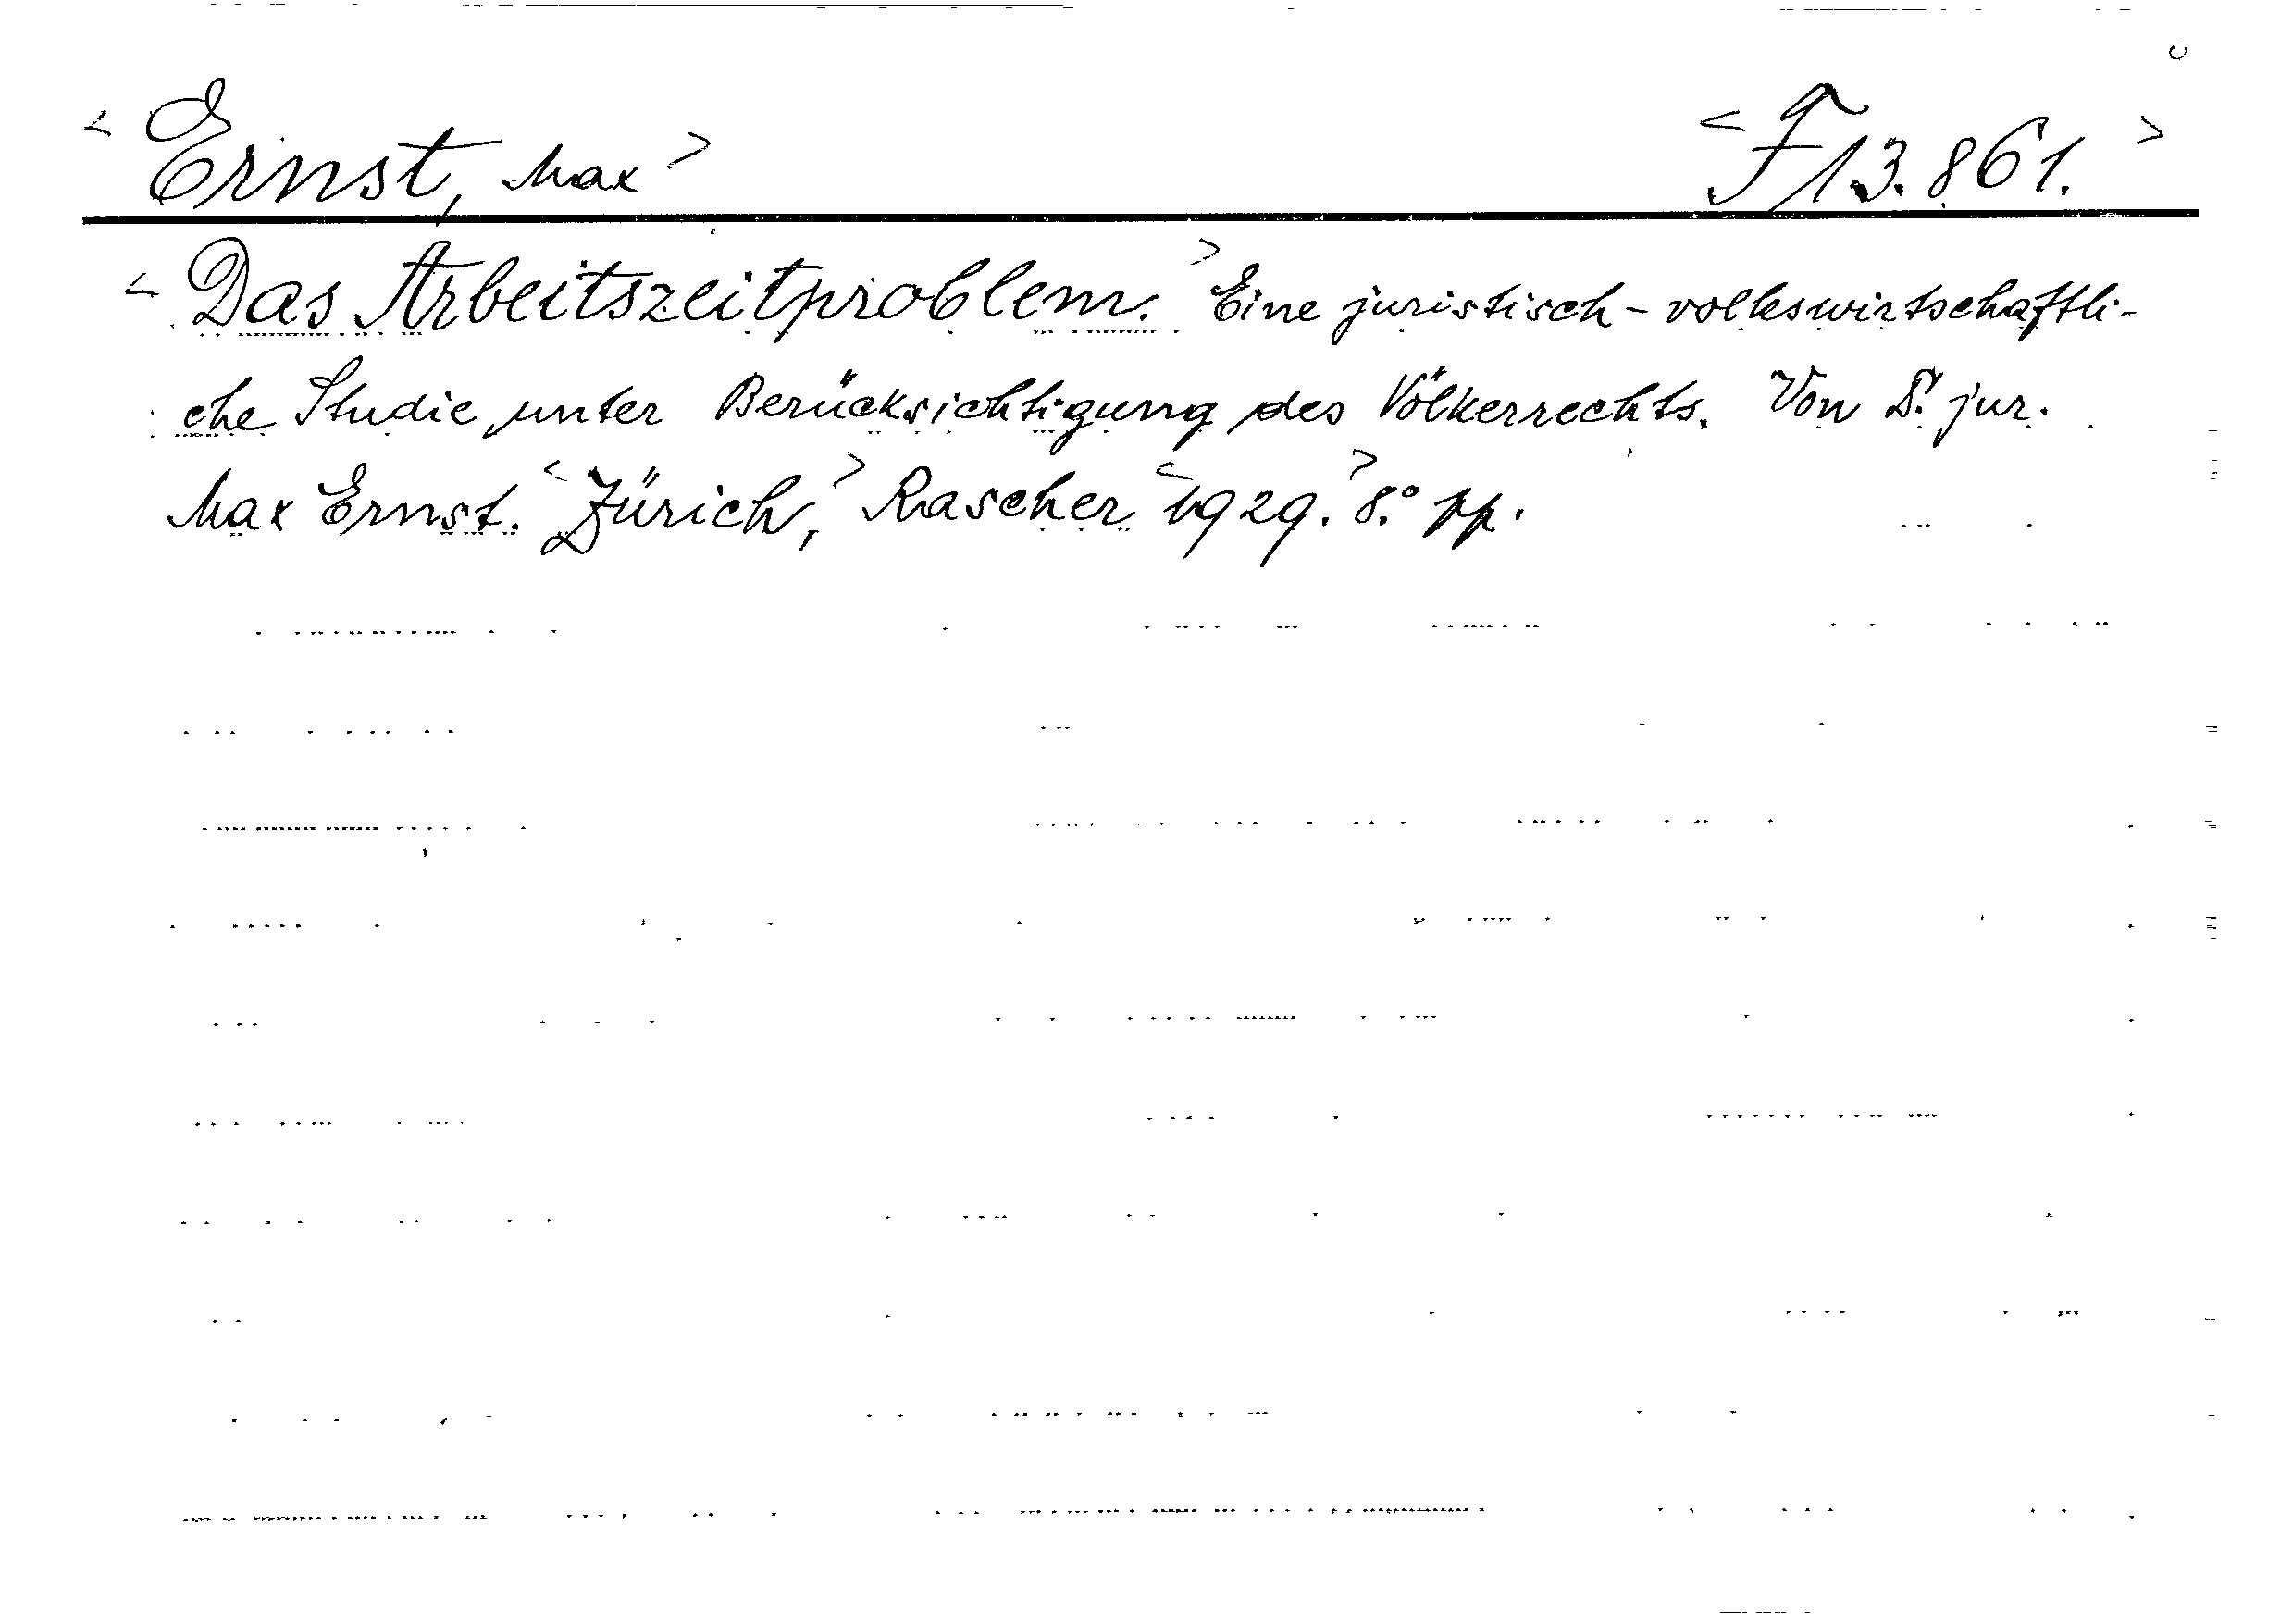 < Ernst, Max > < F 13.861. >
< Das Arbeitszeitproblem. > Eine juristisch-volkswirtschaftli-
che Studie unter Berücksichtigung des Völkerrechts. Von Dr. jur.
Max Ernst. < Zürich, > Rascher < 1929. > 8.° pp.